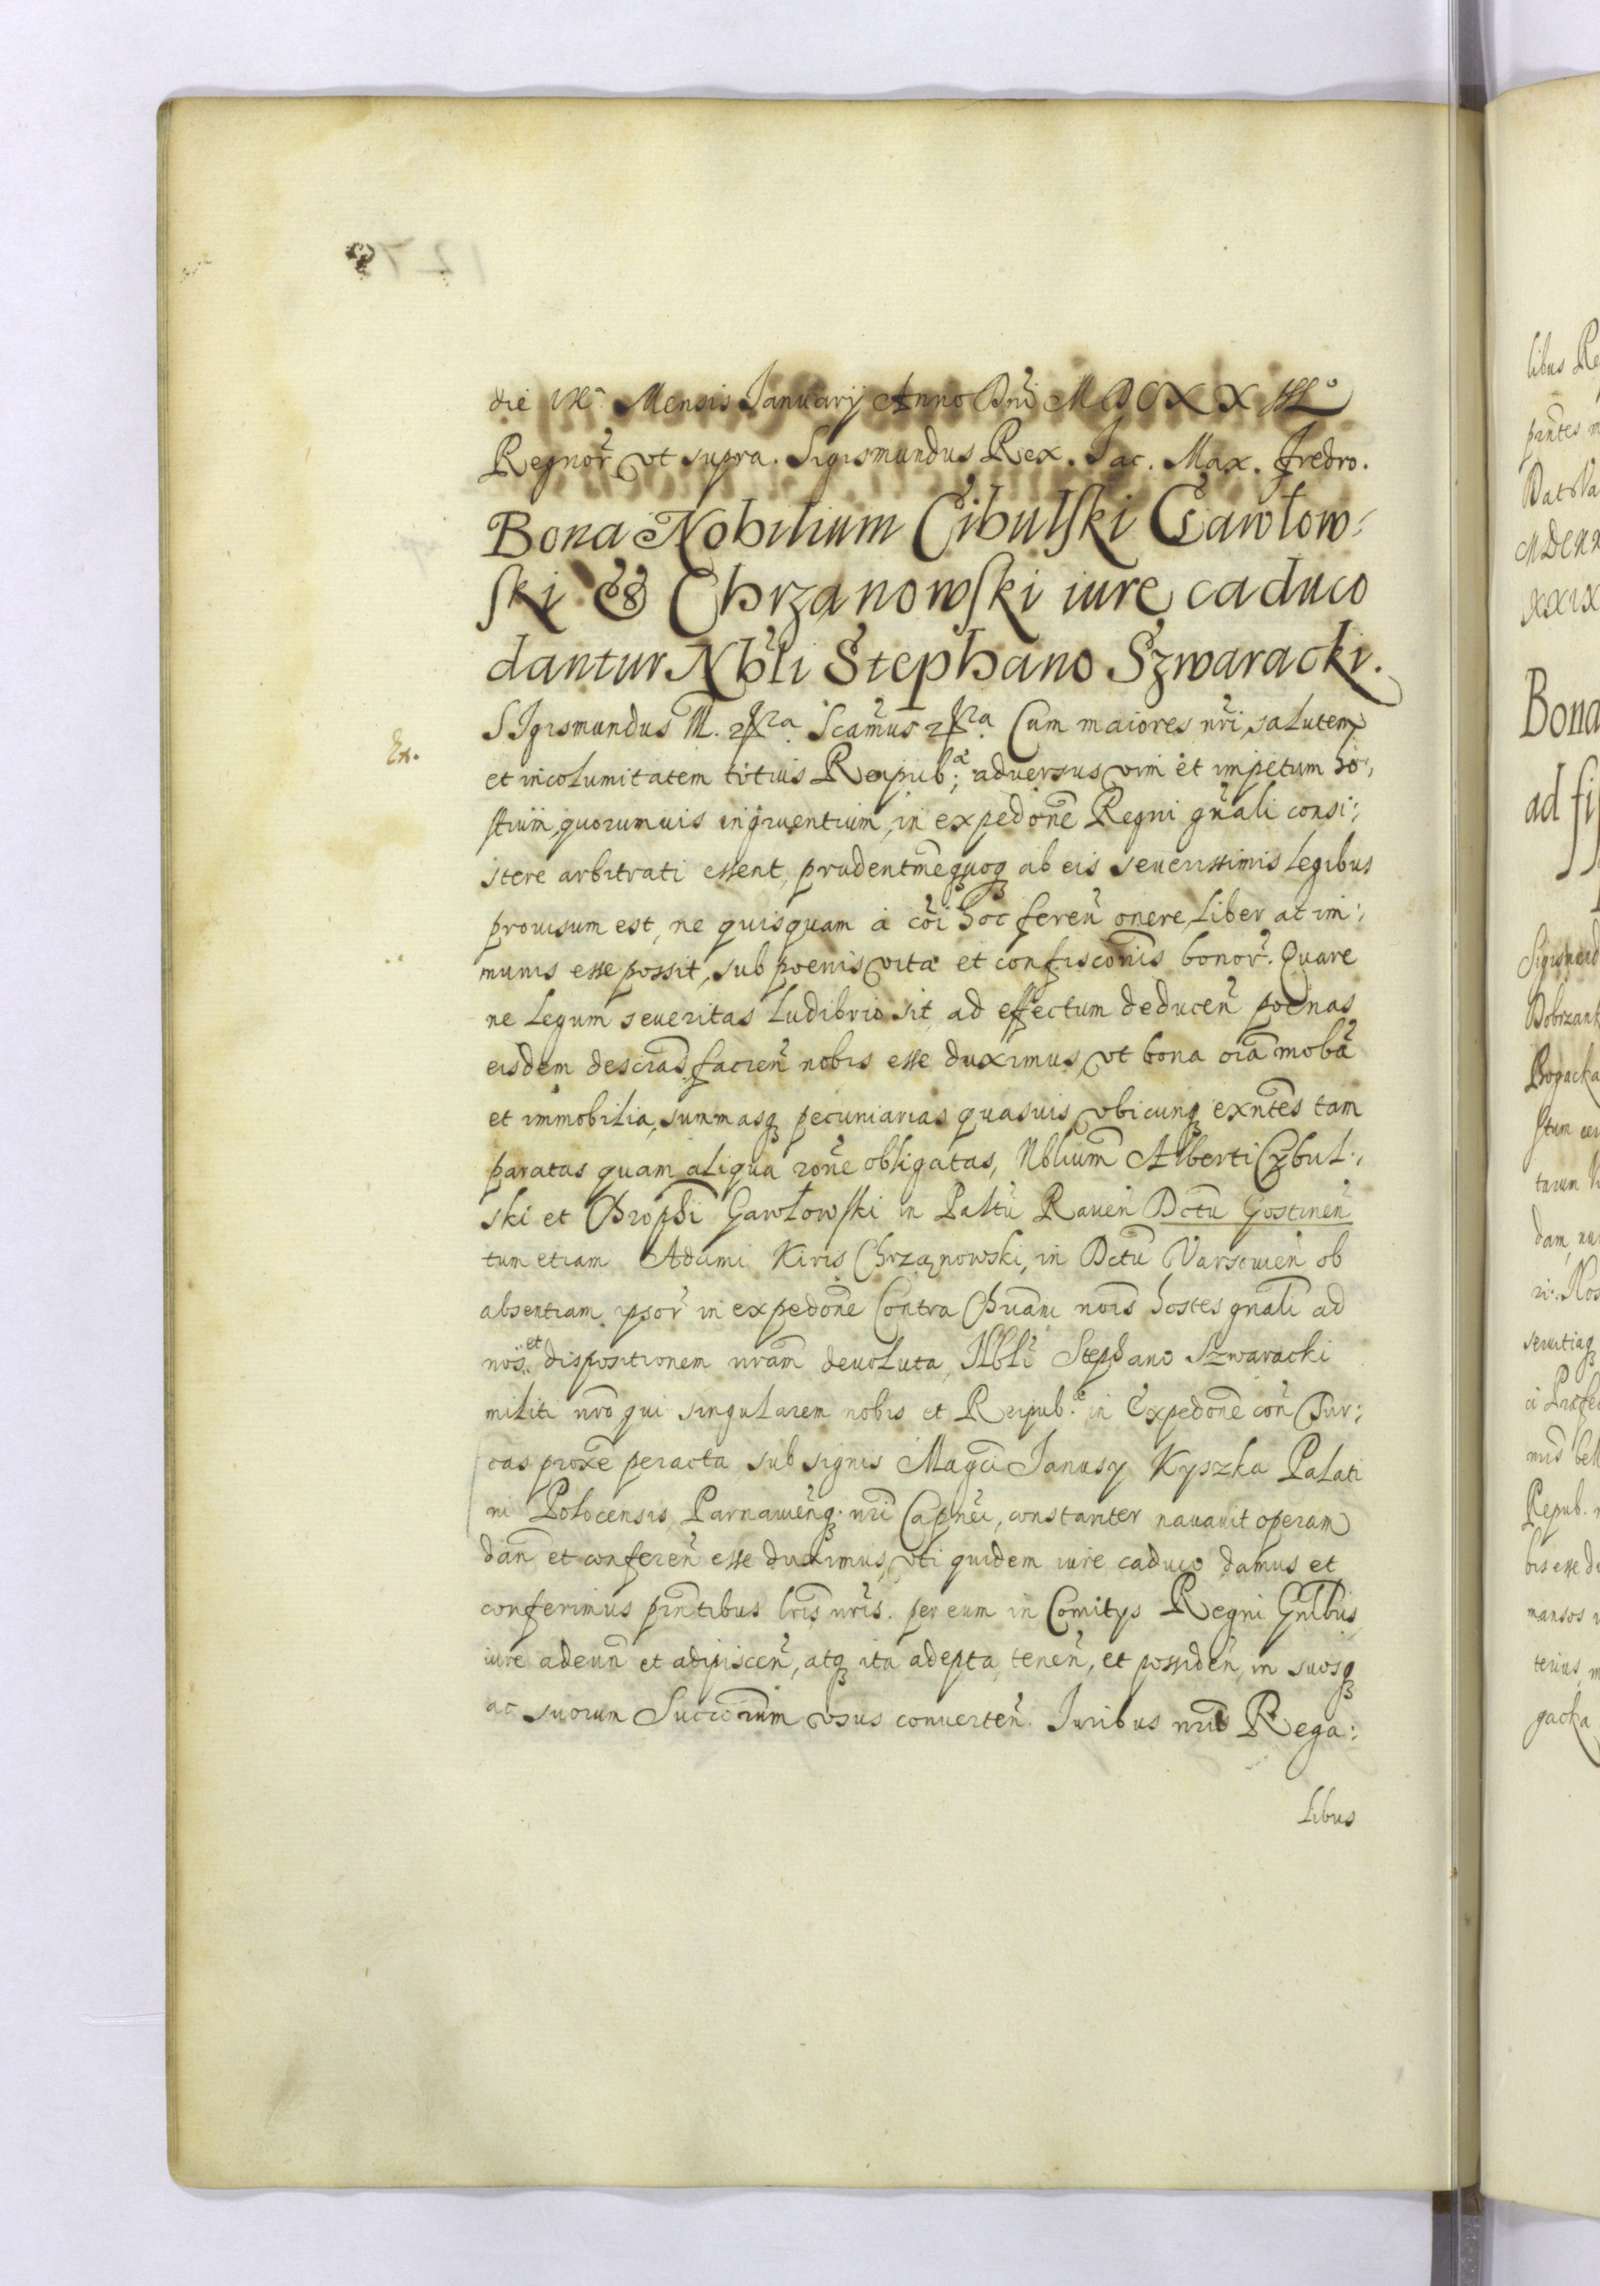 die IXa Mensis Ianuarij Anno Dni MDCXX
Regnor ut supra. Sigismundus Rex. Iac. Max. Fredro.
Bona Nobilium Cibulski Gawłow:
ski & Chrzanowski iure caduco
dantur Nbli Stephano Szwaracki.
Ex.
SIgismundus III. Scamus Cum maiores nri salutem
et incolumitatem totius Reipub: adversus vim et impetum ho:
stium quorumuis ingruentium, in expedone Regni gnali consi:
stere arbitrati essent, prudentmequoq ab eis seuerissimis legibus
prouisum est, ne quisquam a coi hoc feren onere liber at im:
munis esse possit, sub poenis vitæ et confisconis bonor. Quare
ne legum seueritas ludibrio sit, ad effectum deducen poenas
eisdem descras facien nobis esse duximus, vt bona oia moba
et immobilia, summasq pecuniarias quasuis vbicunq exntes tam
paratas quam aliqua rone obligatas, Nblium Alberti Cybul:
ski et Chrophi Gawłowski in Paltu Rauen Dctu Gostinen
tum etiam Adami Kiris Chrzanowski, in Dctu Varsouien ob
absentiam ipsor in expedone Contra Chuani nois hostes gnali ad
nos et dispositionem nram deuoluta, Nbli Stephano Szwaracki
militi nro qui singularem nobis et Reipub. in Expedone con Tur:
cas proxe peracta sub signis Magci Ianusy Kyszka Palati
ni Polocensis Parnauienq. nri Capnei, constanter nauauit operam
dan et conferen esse duximus, vti quidem iure caduco damus et
conferimus pntibus lris nris. per eum in Comitys Regni Gnlbus
iure adeun et adipiscen, atq ita adepta tenen, et possiden, in suosq
ac suorum Succorum vsus conuerten. Iuribus nris Rega:
libus